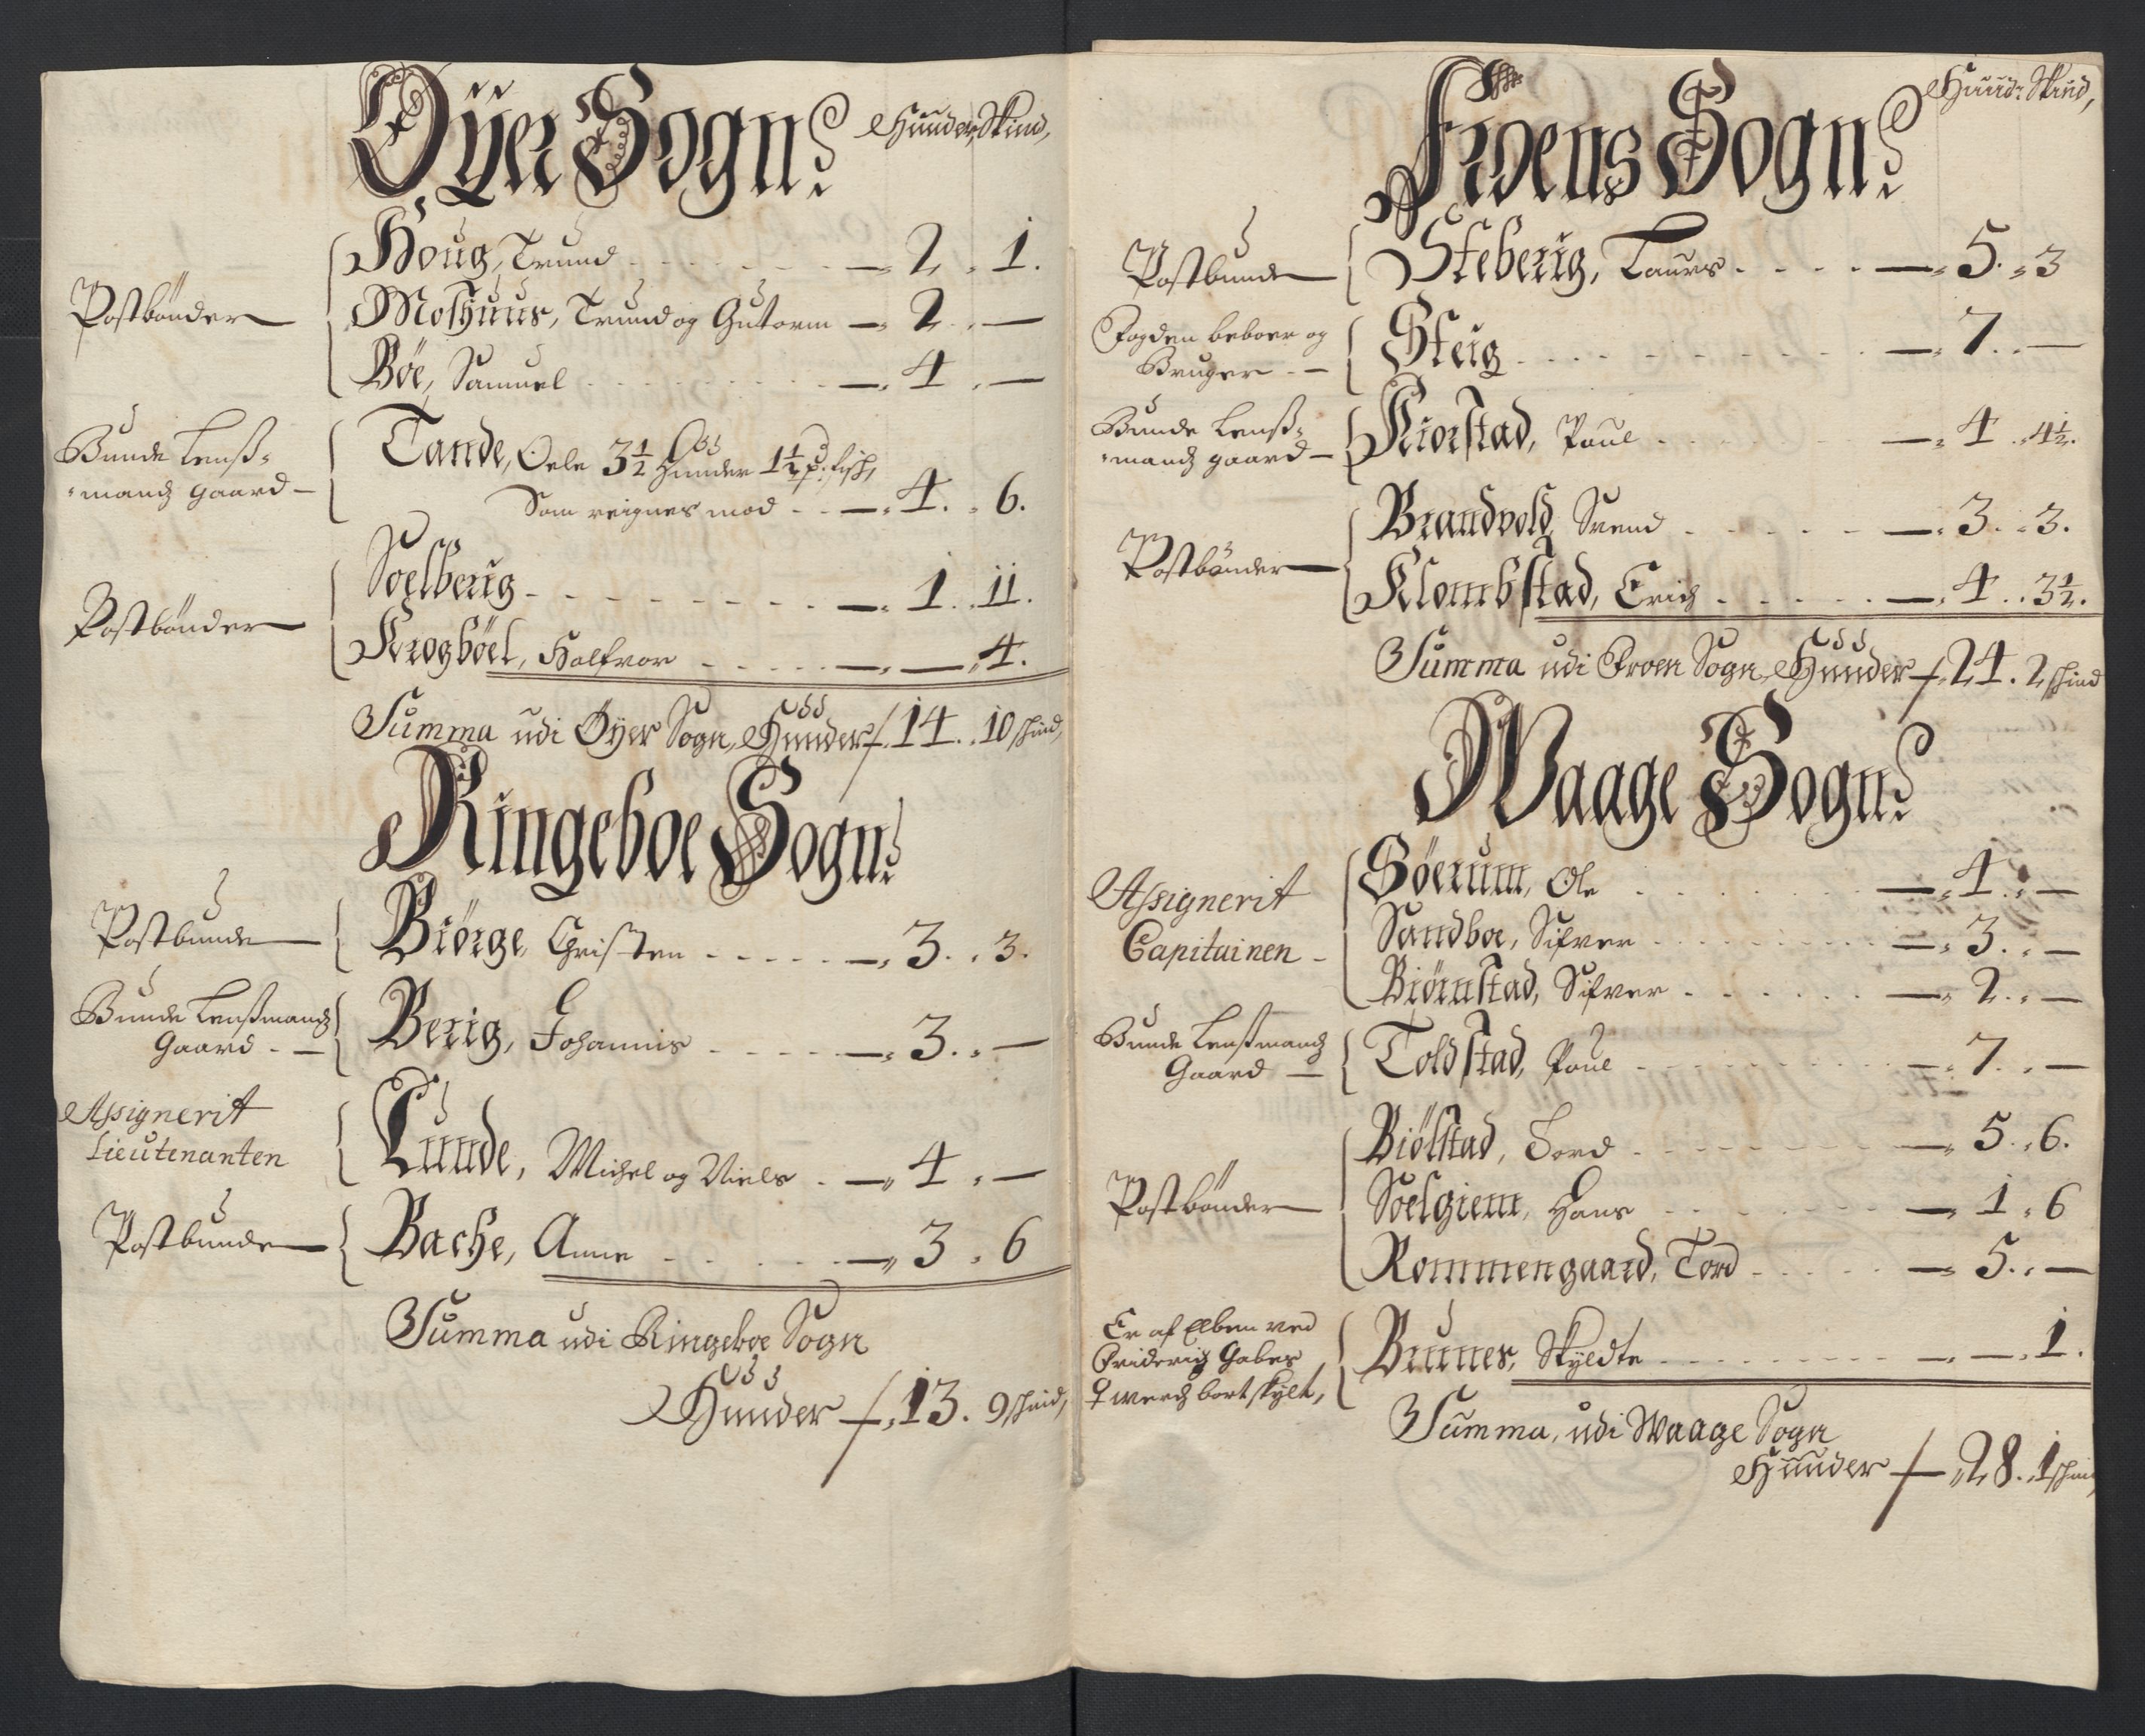 Öÿer Sogn. Hunder, Skind,
Postbönder
Houg, Trund — 2. 1.
Moshuus, Trund og Gutorm — 2. —
Böe, Samuel — 4. —
Bunde Lenß-
mandz gaard —
Tande, Oele 3½ Hunder 1½ ℔. fisk,
Som reignes mod — 4. 6.
Postbönder
Soelberig — 1. 11.
Krogböel, Halfvor — — 4.
Summa udi Öyer Sogn, Hunder 14. 10 skind,
Ringeboe Sogn.
Postbunde
Biörge, Christen — 3. 3.
Bunde Lenßmandz
Gaard —
Berig, Johannis — 3. —
Assignerit
Lieutenanten
Lunde, Michel og Niels — 4. —
Postbunde
Bache, Anne — 3. 6
Summa udi Ringeboe Sogn
Hunder 13. 9 skind,
Froens Sogn. Hund: Skind,
Postbunde
Steberig, Laurs — 5. 3
Fogden beboer og
Bruger —
Steig — 7. —
Bunde Lenß-
mandz gaard —
Kiorstad, Poul — 4. 4½.
Postbönder
Brandvold, Svend — 3. 3.
Klombstad, Erich — 4. 3½.
Summa udi Froen Sogn, Hunder 24. 2 skind
Waage Sogn.
Assignerit
Capitainen —
Söerum, Ole — 4. —
Sandboe, Sifver — 3. —
Biörnstad, Sifver — 2. —
Bunde Lenßmandz
Gaard —
Toldstad, Poul — 7. —
Postbönder
Biölstad, Tord — 5. 6.
Soelgiem, Hans — 1. 6
Rommengaard, Tord — 5. —
Er af Elben ved
Friderich Gabes
qwerch bortskylt,
Bruner, Skyldte — — 1.
Summa, udi Waage Sogn
Hunder 28. 1 skind